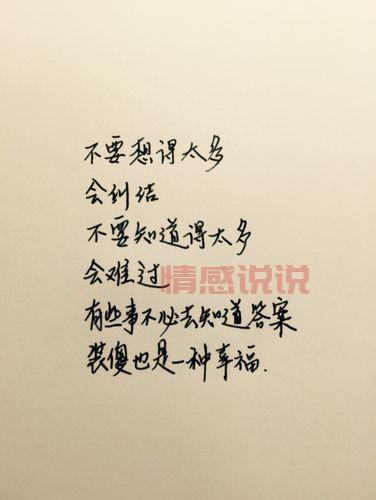 不要想得太多
会纠结
不要知道得太多
会难过
情感说说
有些事不必去知道答案
装傻也是一种幸福.